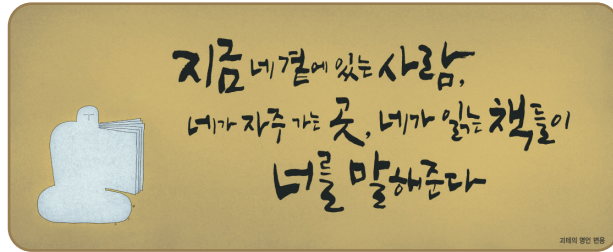 지금 네 곁에 있는 사람,
네가 자주 가는 곳, 네가 읽는 책들이
너를 말해준다
괴테의 명언 변용